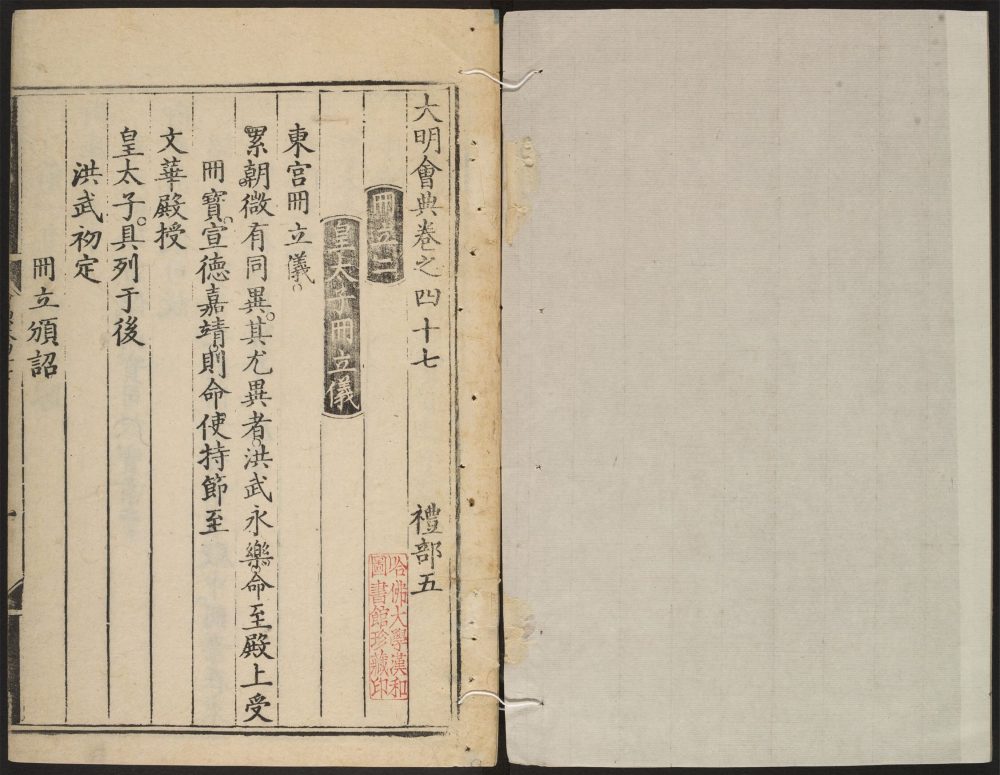 大明會典卷之四十七 禮部五
冊立二
哈佛大學漢和
圖書館珍藏印
皇太子冊立儀
東宮冊立儀。
累朝微有同異。其尤異者。洪武永樂。命至殿上受
冊寶。宣德嘉靖。則命使持節至
文華殿授
皇太子。具列于後
洪武初定
冊立頒詔